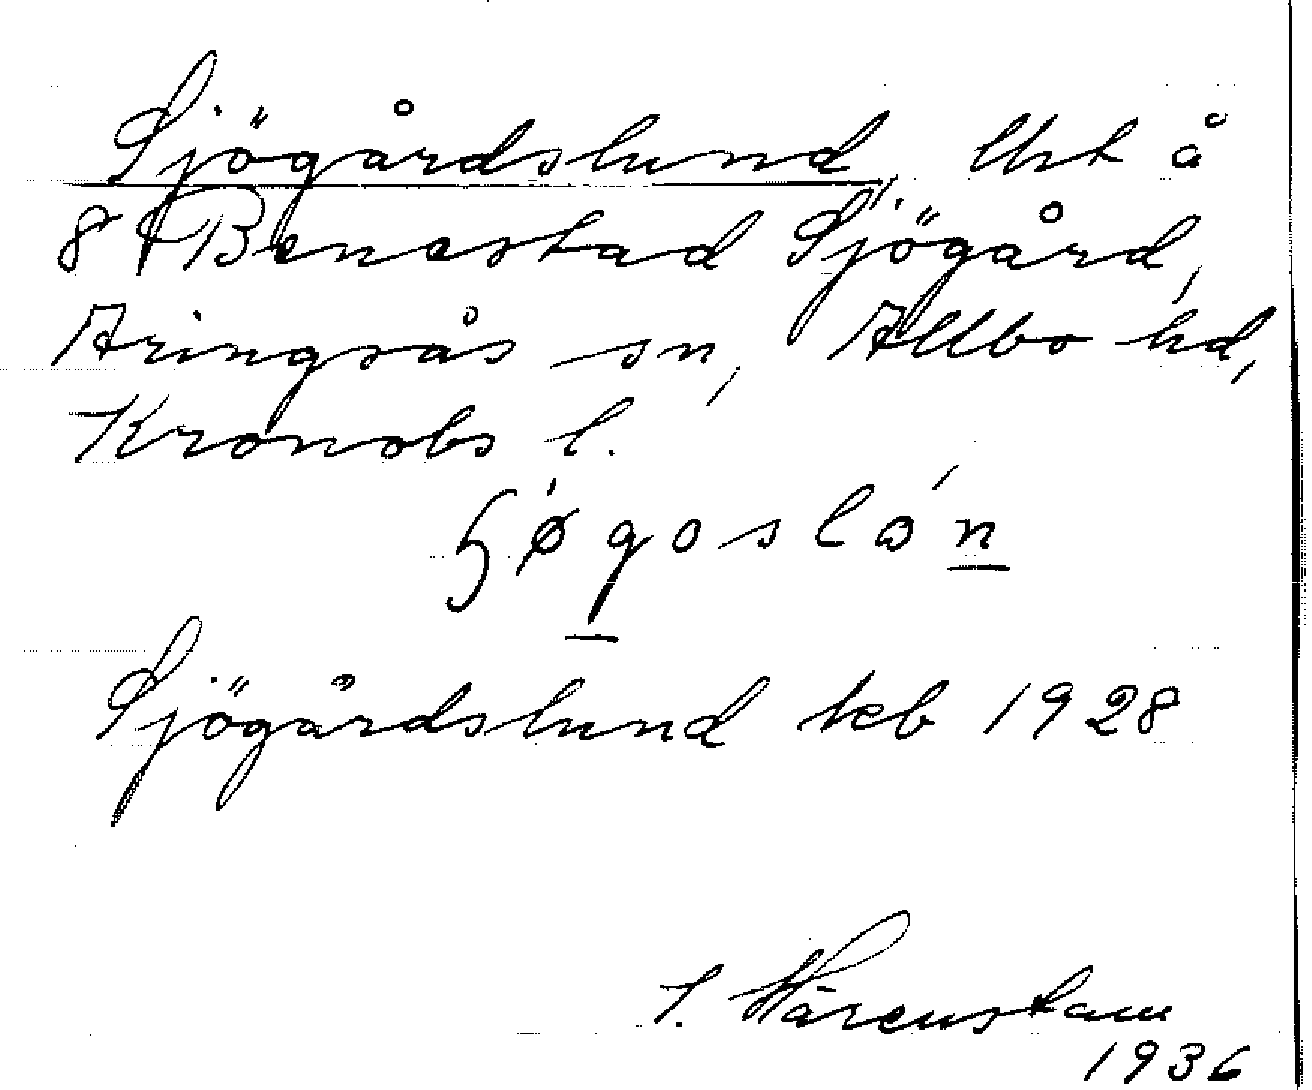 Sjögårdslund, lht å
8 Benestad Sjögård,
Aringsås sn, Allbo hd,
Kronobs l.
Sjögårdslund teb 1928
Wärenstam
1936